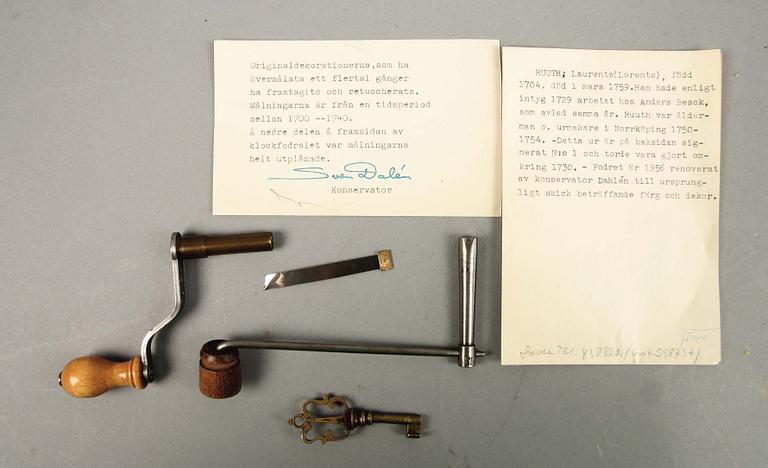 Originaldekorationerna,som ha
övermålats ett flertal gånger
ha framtagits och retuscherats.
Målningarna är från en tidsperiod
mellan 1700 --1740.
Å nedre delen å framsidan av
klockfodralet var målningarna
helt utplånade.
Sven Dalén
Konservator
RUUTH; Laurentz(Lorents), född
1704, död i mars 1759.Han hade enligt
intyg 1729 arbetat hos Anders Besck,
som avled samma år. Ruuth var Ålder-
man o. urmakare i Norrköping 1750-
1754. -Detta ur är på baksidan sig-
nerat N:o 1 och torde vara gjort om-
kring 1730. - Fodret är 1956 renoverat
av konservator Dahlén till ursprung-
ligt skick beträffande färg och dekor.